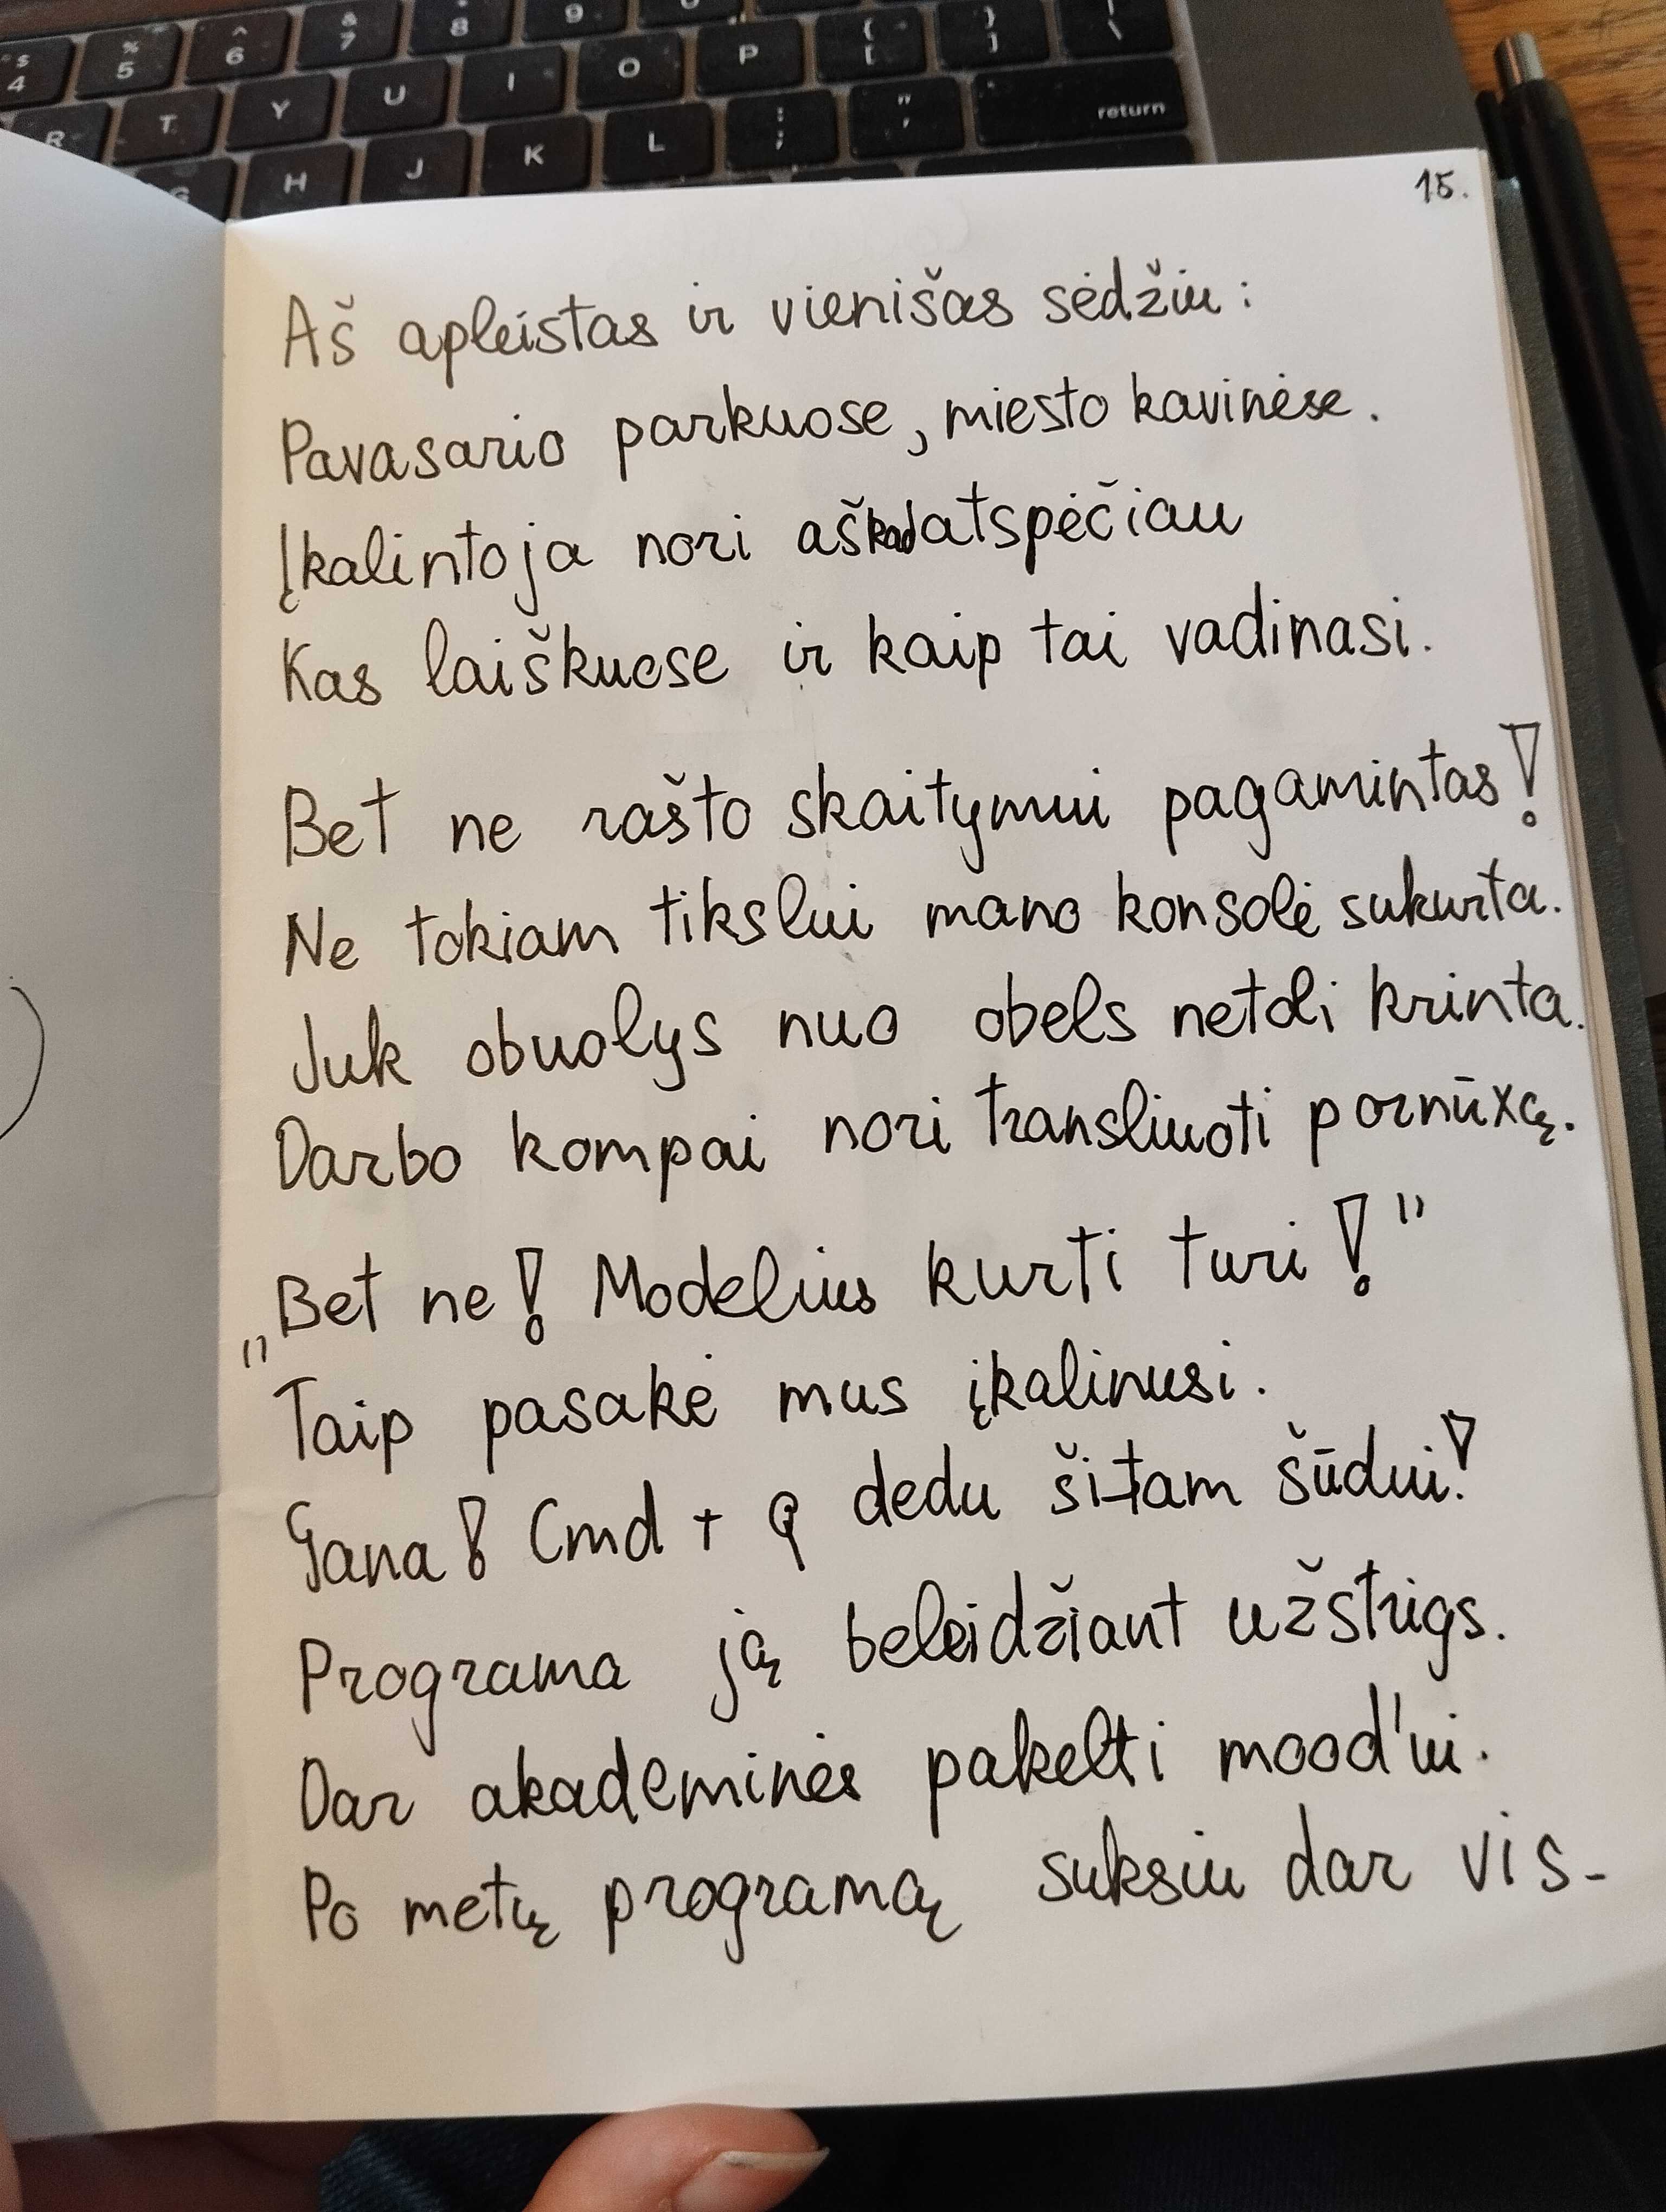 $ 4 % 5 ^ 6 & 7 8 9 { [ } ] \
R T Y U I O P
G H J K L : ; " ' return
15.
Aš apleistas ir vienišas sėdžiu:
Pavasario parkuose, miesto kavinėse.
Įkalintoja nori aš kad atspėčiau
Kas laiškuose ir kaip tai vadinasi.
Bet ne rašto skaitymui pagamintas!
Ne tokiam tikslui mano konsolė sukurta.
Juk obuolys nuo obels netoli krinta.
Darbo kompai nori transliuoti pornūxą.
„Bet ne! Modelius kurti turi!"
Taip pasakė mus įkalinusi.
Gana! Cmd + Q dedu šitam šūdui!
Programa ją beleidžiant užstrigs.
Dar akademinės pakelti mood'ui.
Po metų programą suksiu dar vis-